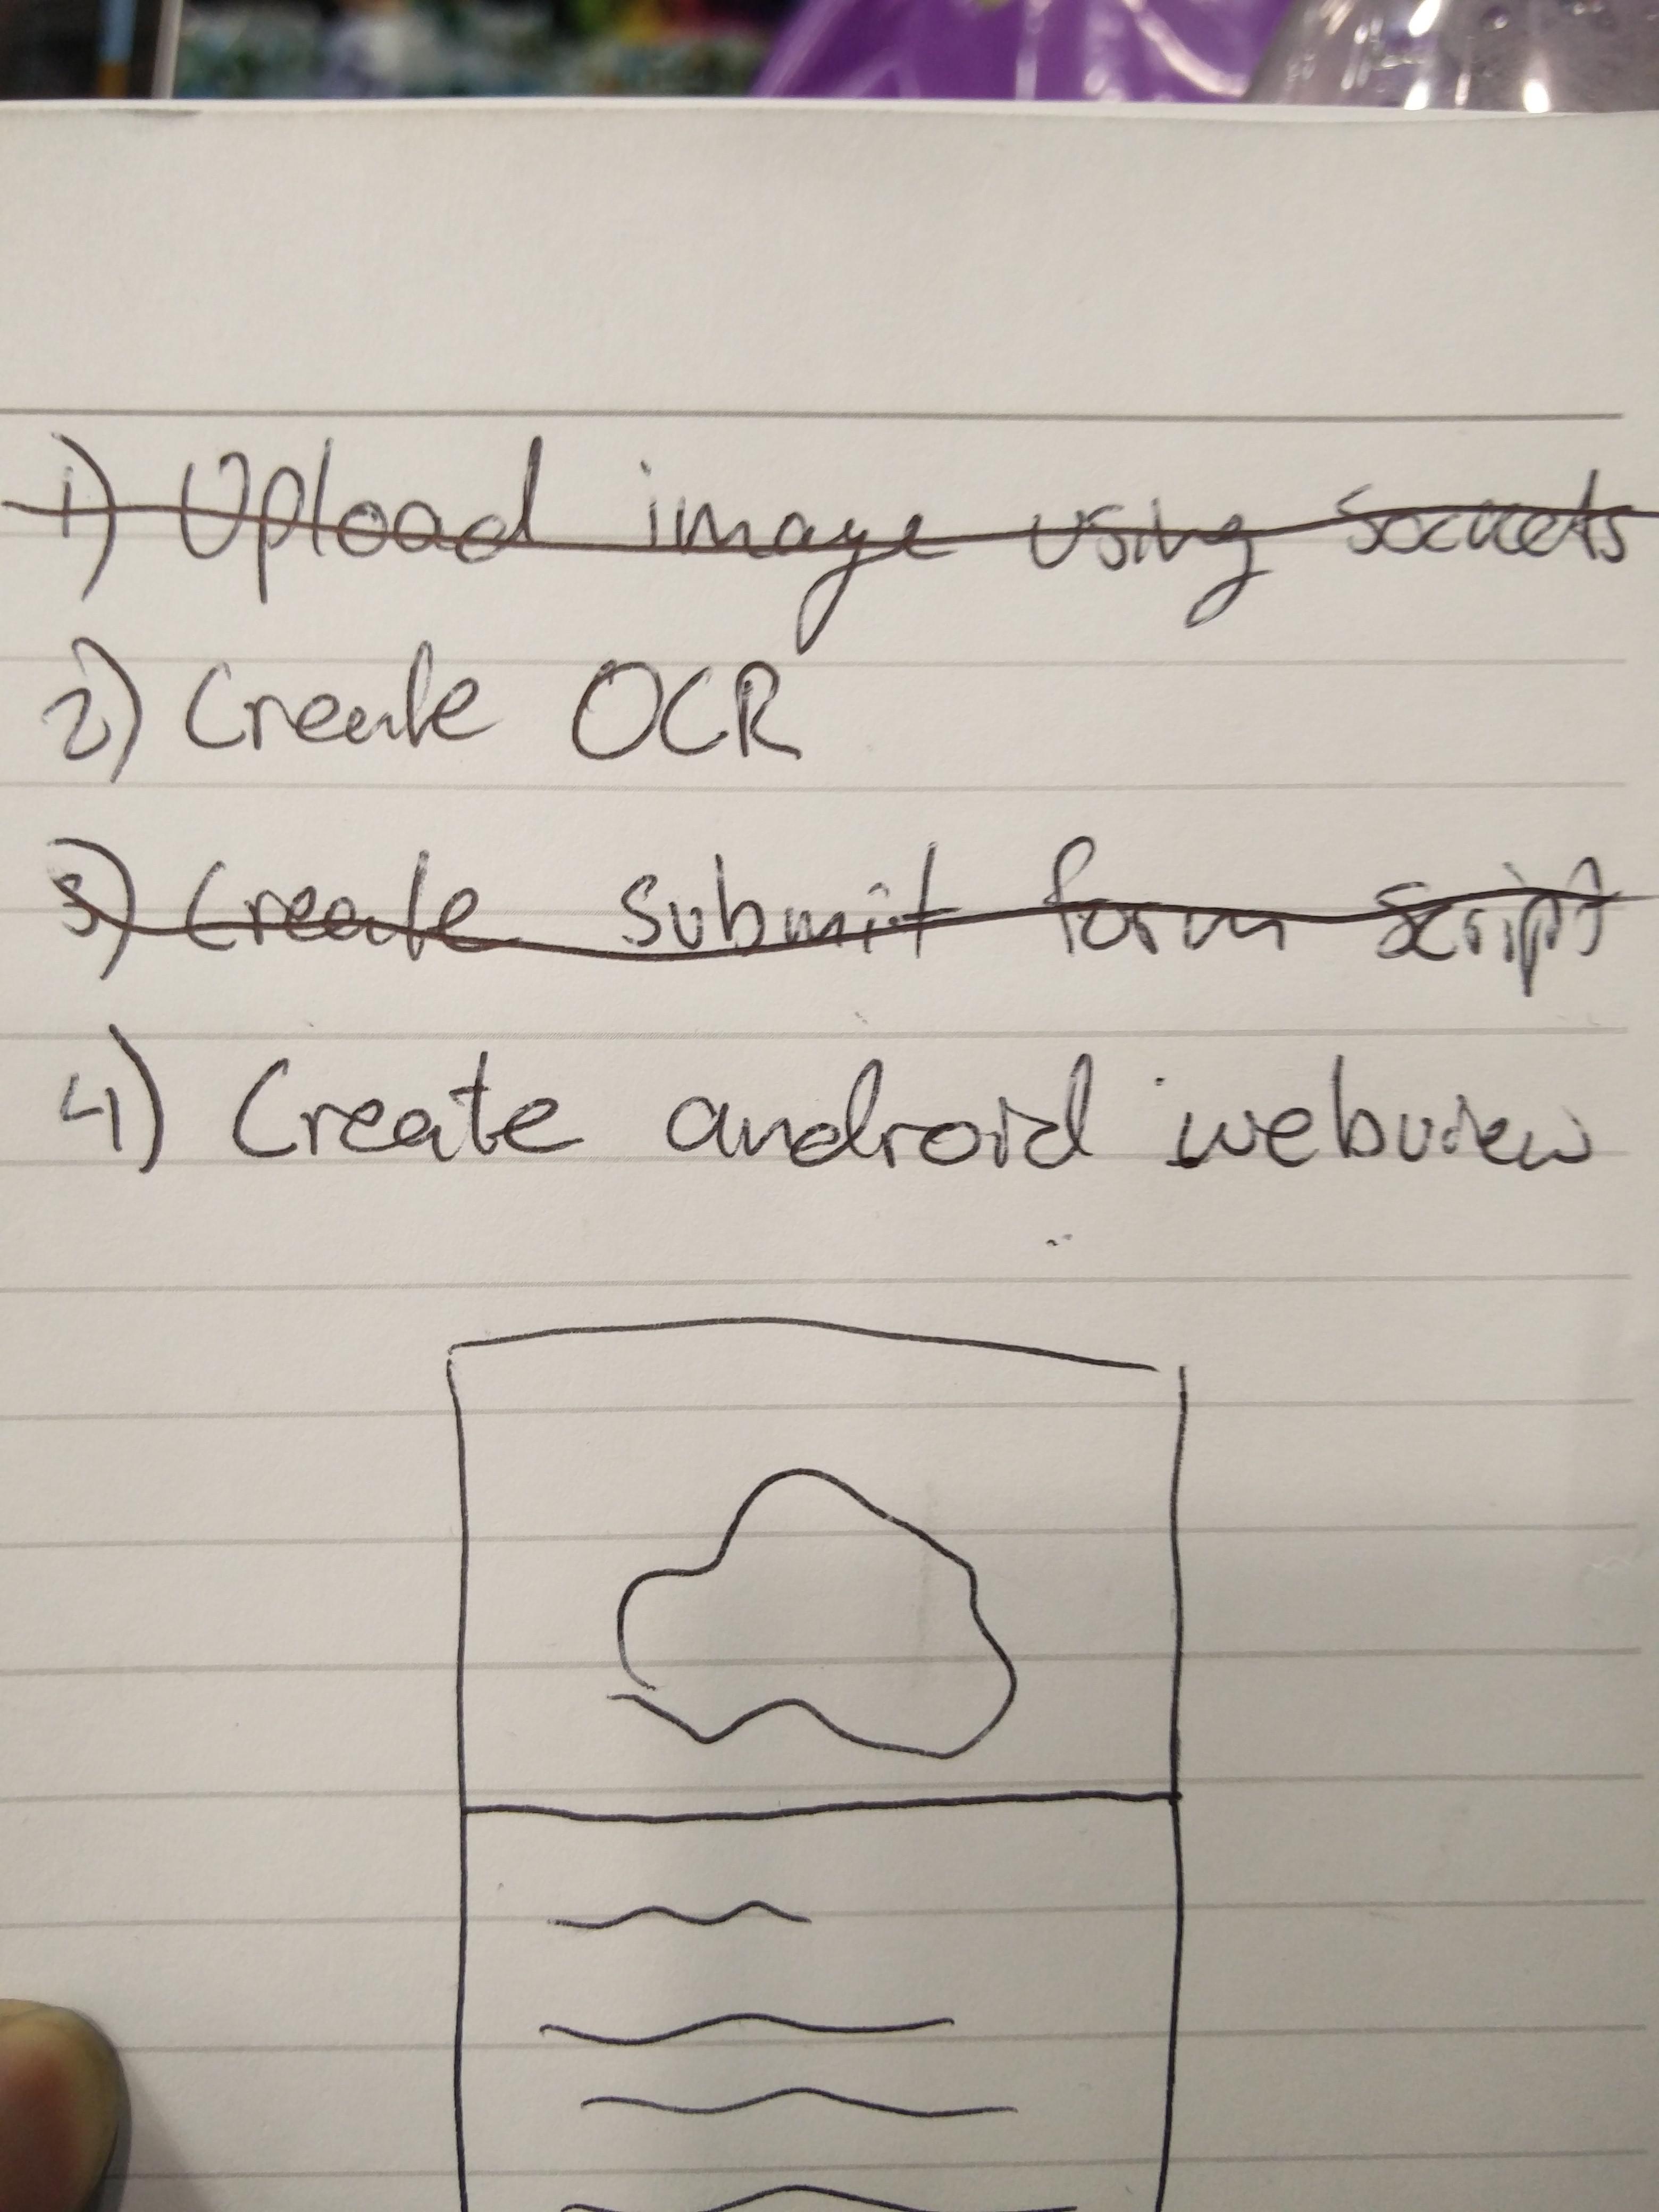 1) Upload image using sockets
2) Create OCR
3) Create submit form script
4) Create android webview